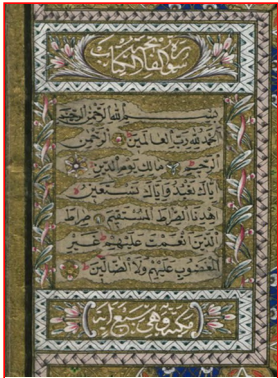 سورة فاتحة الكتاب
بسم الله الرحمن الرحيم
الحمد لله رب العالمين الرحمن
الرحيم مالك يوم الدين
اياك نعبد واياك نستعين
اهدنا الصراط المستقيم صراط
الذين انعمت عليهم غير
المغضوب عليهم ولا الضالين
مكية وهي سبع آية